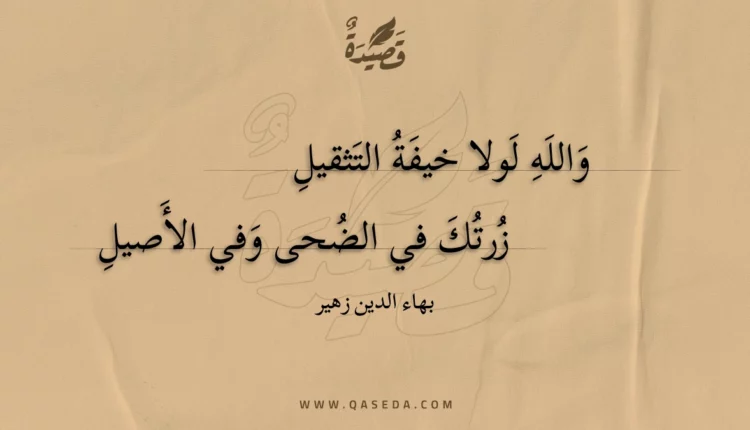 قَصِيدَةٌ
وَاللَهِ لَولا خيفَةُ التَثقيلِ
زُرتُكَ في الضُحى وَفي الأَصيلِ
بهاء الدين زهير
WWW.QASEDA.COM